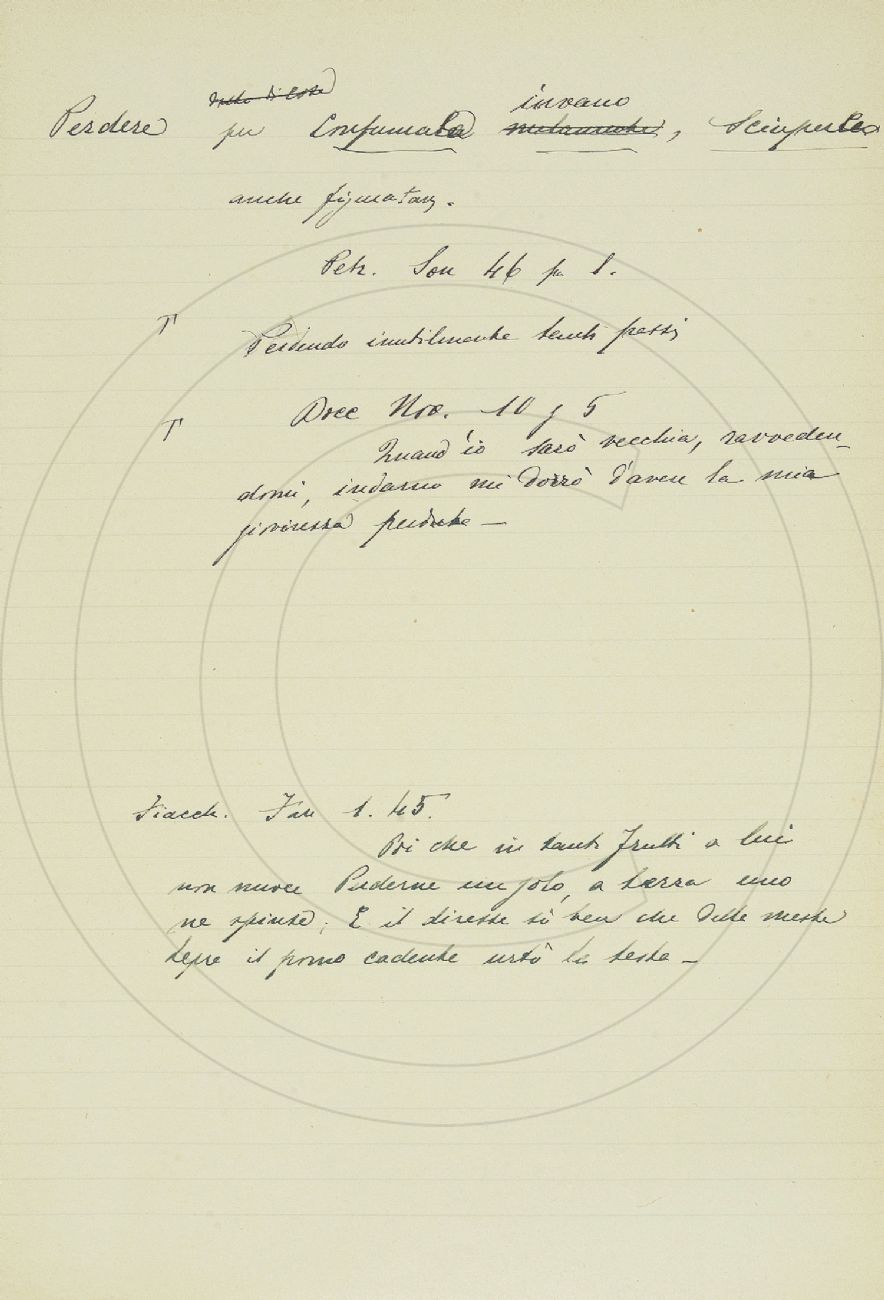 detto di cosa
invano
Perdere per Consumarla malamente, Sciuparla
anche figuratam.
Petr. Son 46 p. 1.
T Perdendo inutilmente tanti passi
T Decc Nov. 10 g 5
Quand'io sarò vecchia, ravveden-
domi, indarno mi dorrò d'avere la mia
giovinezza perduta —
Fiacch. Fav 1. 45.
Poi che in tanti frutti a lui
non nuoce Perderne un solo, a terra uno
ne spinse; E il diresse sì ben che delle meste
lepre il pomo cadente urtò la testa —